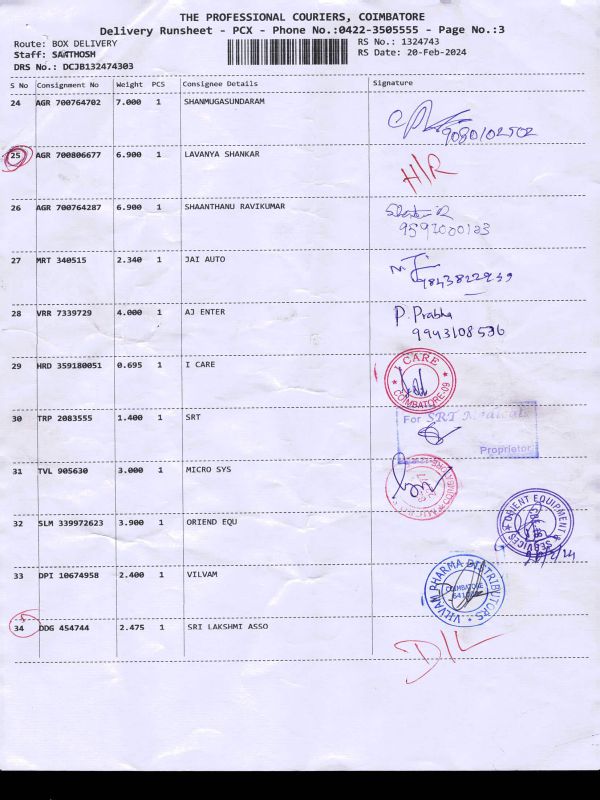 THE PROFESSIONAL COURIERS, COIMBATORE
Delivery Runsheet - PCX - Phone No.:0422-3505555 - Page No.:3
Route: BOX DELIVERY RS No.: 1324743
Staff: SANTHOSH RS Date: 20-Feb-2024
DRS No.: DCJB132474303
S No Consignment No Weight PCS Consignee Details Signature
24 AGR 700764702 7.000 1 SHANMUGASUNDARAM
9080102502
25 AGR 700806677 6.900 1 LAVANYA SHANKAR H/R
26 AGR 700764287 6.900 1 SHAANTHANU RAVIKUMAR
27 MRT 340515 2.340 1 JAI AUTO
28 VRR 7339729 4.000 1 AJ ENTER P. Prabha
9943108536
29 HRD 359180051 0.695 1 I CARE I CARE
COIMBATORE-09
30 TRP 2083555 1.400 1 SRT For SRT
Proprietor
31 TVL 905630 3.000 1 MICRO SYS
32 SLM 339972623 3.900 1 ORIEND EQU ORIENT EQUIPMENT & SERVICES
33 DPI 10674958 2.400 1 VILVAM VILVAM PHARMA DISTRIBUTORS
COIMBATORE
34 DDG 454744 2.475 1 SRI LAKSHMI ASSO D/L